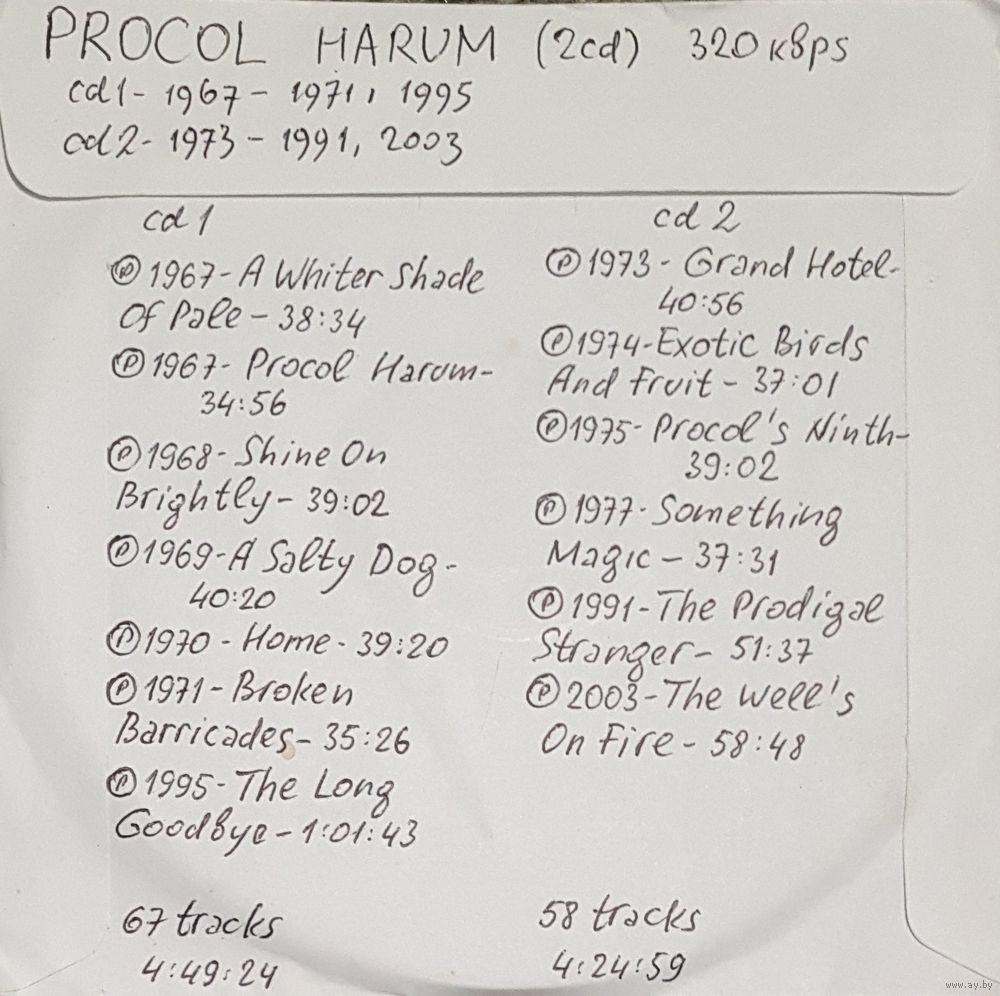 PROCOL HARUM (2cd) 320 квps
cd1 - 1967 - 1971, 1995
cd2 - 1973 - 1991, 2003
cd 1
Ⓟ 1967 - A Whiter Shade
Of Pale - 38:34
Ⓟ 1967 - Procol Harum -
34:56
Ⓟ 1968 - Shine On
Brightly - 39:02
Ⓟ 1969 - A Salty Dog -
40:20
Ⓟ 1970 - Home - 39:20
Ⓟ 1971 - Broken
Barricades - 35:26
Ⓟ 1995 - The Long
Goodbye - 1:01:43
67 tracks
4:49:24
cd 2
Ⓟ 1973 - Grand Hotel -
40:56
Ⓟ 1974 - Exotic Birds
And Fruit - 37:01
Ⓟ 1975 - Procol's Ninth -
39:02
Ⓟ 1977 - Something
Magic - 37:31
Ⓟ 1991 - The Prodigal
Stranger - 51:37
Ⓟ 2003 - The Well's
On Fire - 58:48
58 tracks
4:24:59
www.ay.by